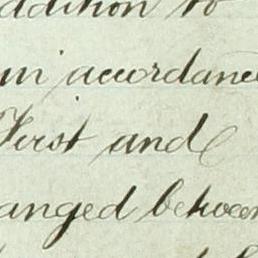 ddition to
in accordance
First and
anged between